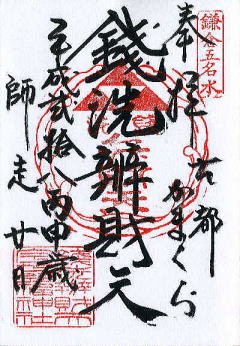 鎌倉五名水
奉拝
古都
かまくら
銭洗辨財天
平成弐拾八丙申歳
師走廿日